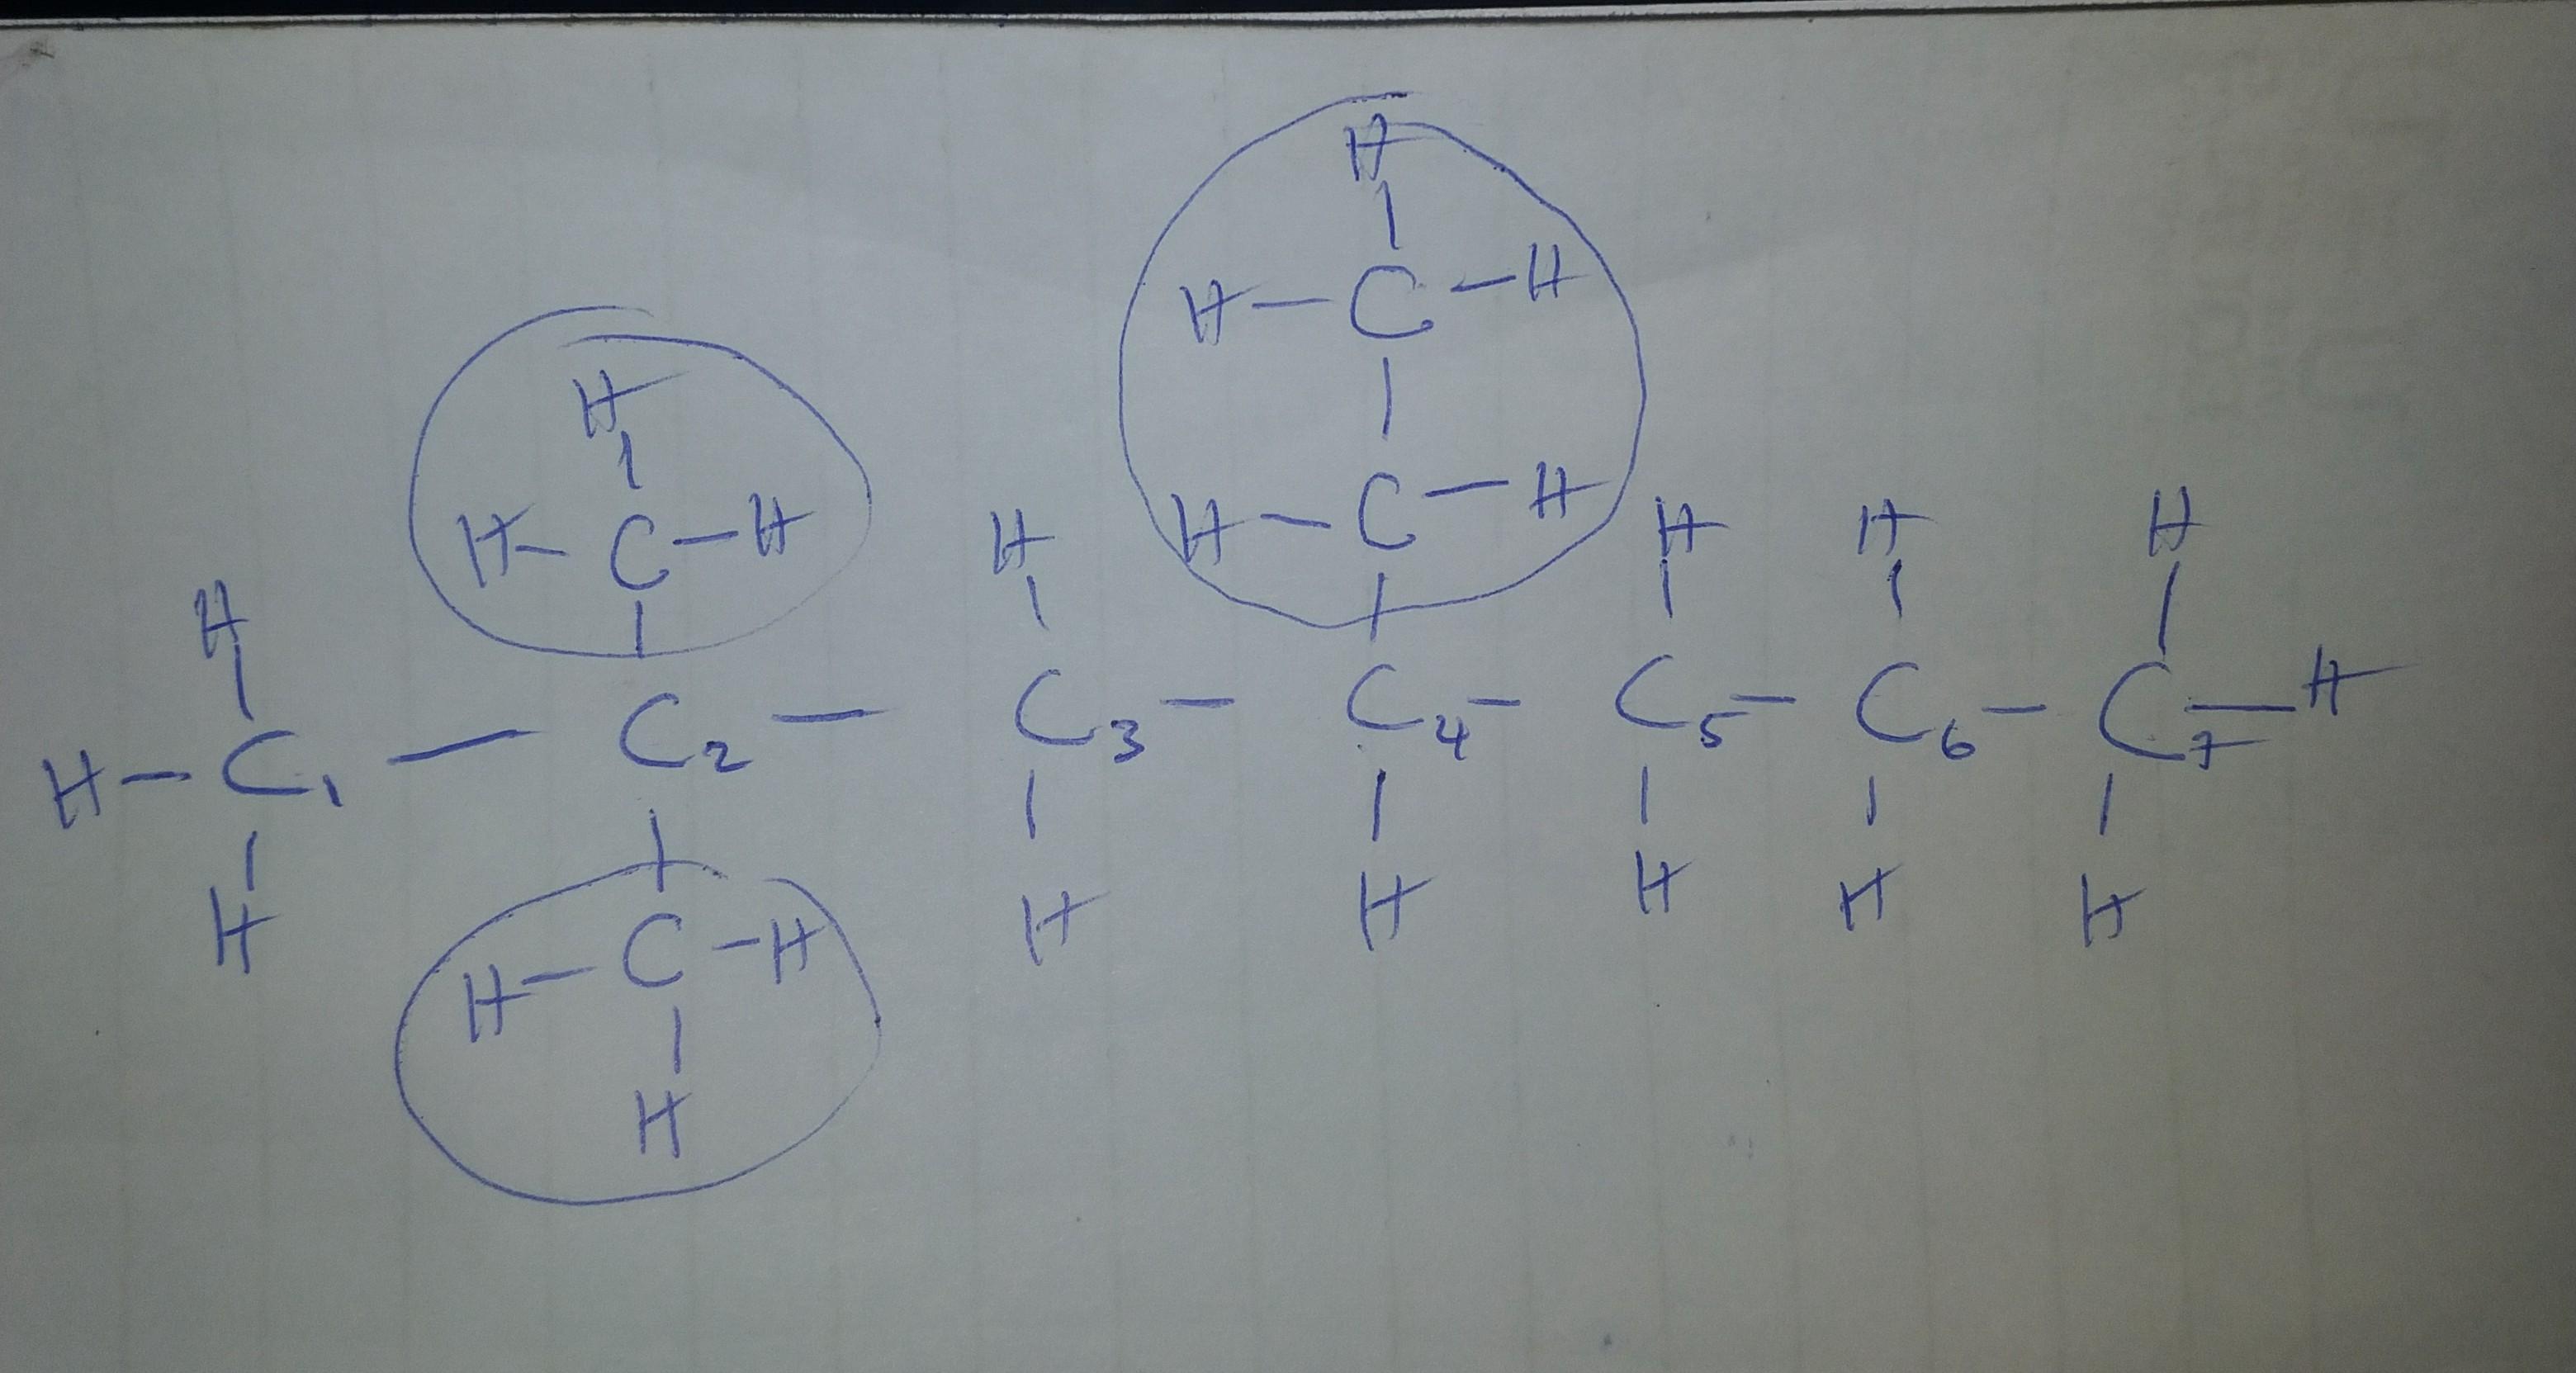 H
H – C – H
H
H – C – H
H – C – H H H H
H H
H – C₁ – C₂ – C₃ – C₄ – C₅ – C₆ – C₇ – H
H H H H H H
H – C – H
H